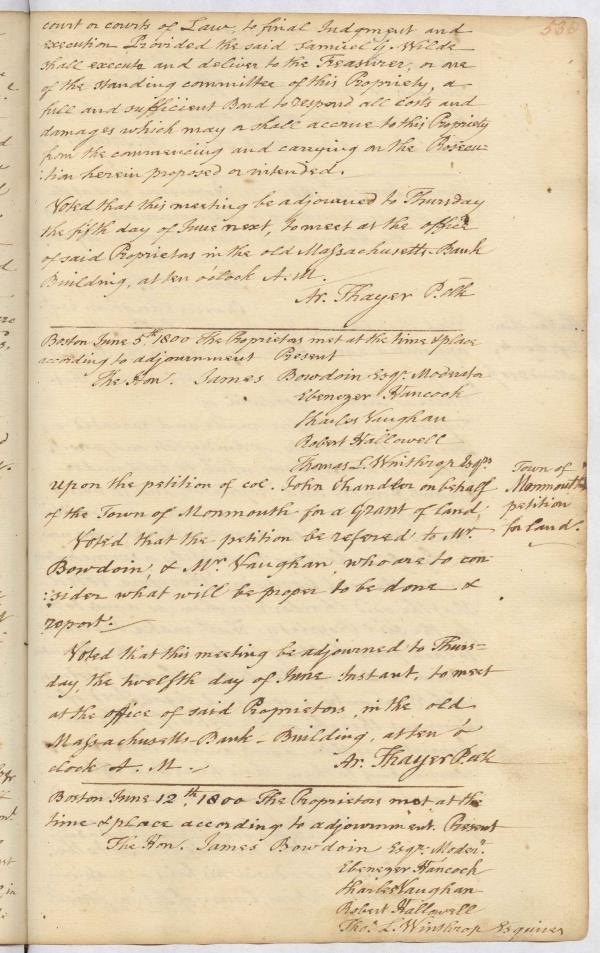 536
court or courts of Law, to final Judgment and
execution Provided the said Samuel G. Wilde
shall execute and deliver to the Treasurer, or one
of the standing committee of this Propriety, a
full and sufficient Bond to respond all costs and
damages which may or shall accrue to this Propriety
from the commencing and carrying on the Prosecu=
:tion herein proposed or intended.
Voted that this meeting be adjourned to Thursday
the fifth day of June next, to meet at the office
of said Proprietors in the old Massachusetts Bank
Building, at ten oclock A.M.
Ar. Thayer P. Clk
Boston June 5th. 1800 The Proprietors met at the time & place
according to adjournment Present
The Hon. James Bowdoin Esqr. Moderator
Ebenezer Hancock
Charles Vaughan
Robert Hallowell
Thomas L. Winthrop Esqrs
Upon the petition of col. John Chandler on behalf
of the Town of Monmouth for a Grant of land,
Town of
Monmouth
petition
for land.
Voted that the petition be refered to Mr.
Bowdoin, & Mr. Vaughan, who are to con
:sider what will be proper to be done &
report.
Voted that this meeting be adjourned to Thurs=
day, the twelfth day of June Instant, to meet
at the office of said Proprietors, in the old
Massachusetts-Bank-Building, at ten o'
clock A. M.
Ar. Thayer P. Clk
Boston June 12th. 1800 The Proprietors met at the
time & place according to adjournment. Present
The Hon. James Bowdoin Esqr. Moder.
Ebenezer Hancock
Charles Vaughan
Robert Hallowell
Thos. L. Winthrop Esquires